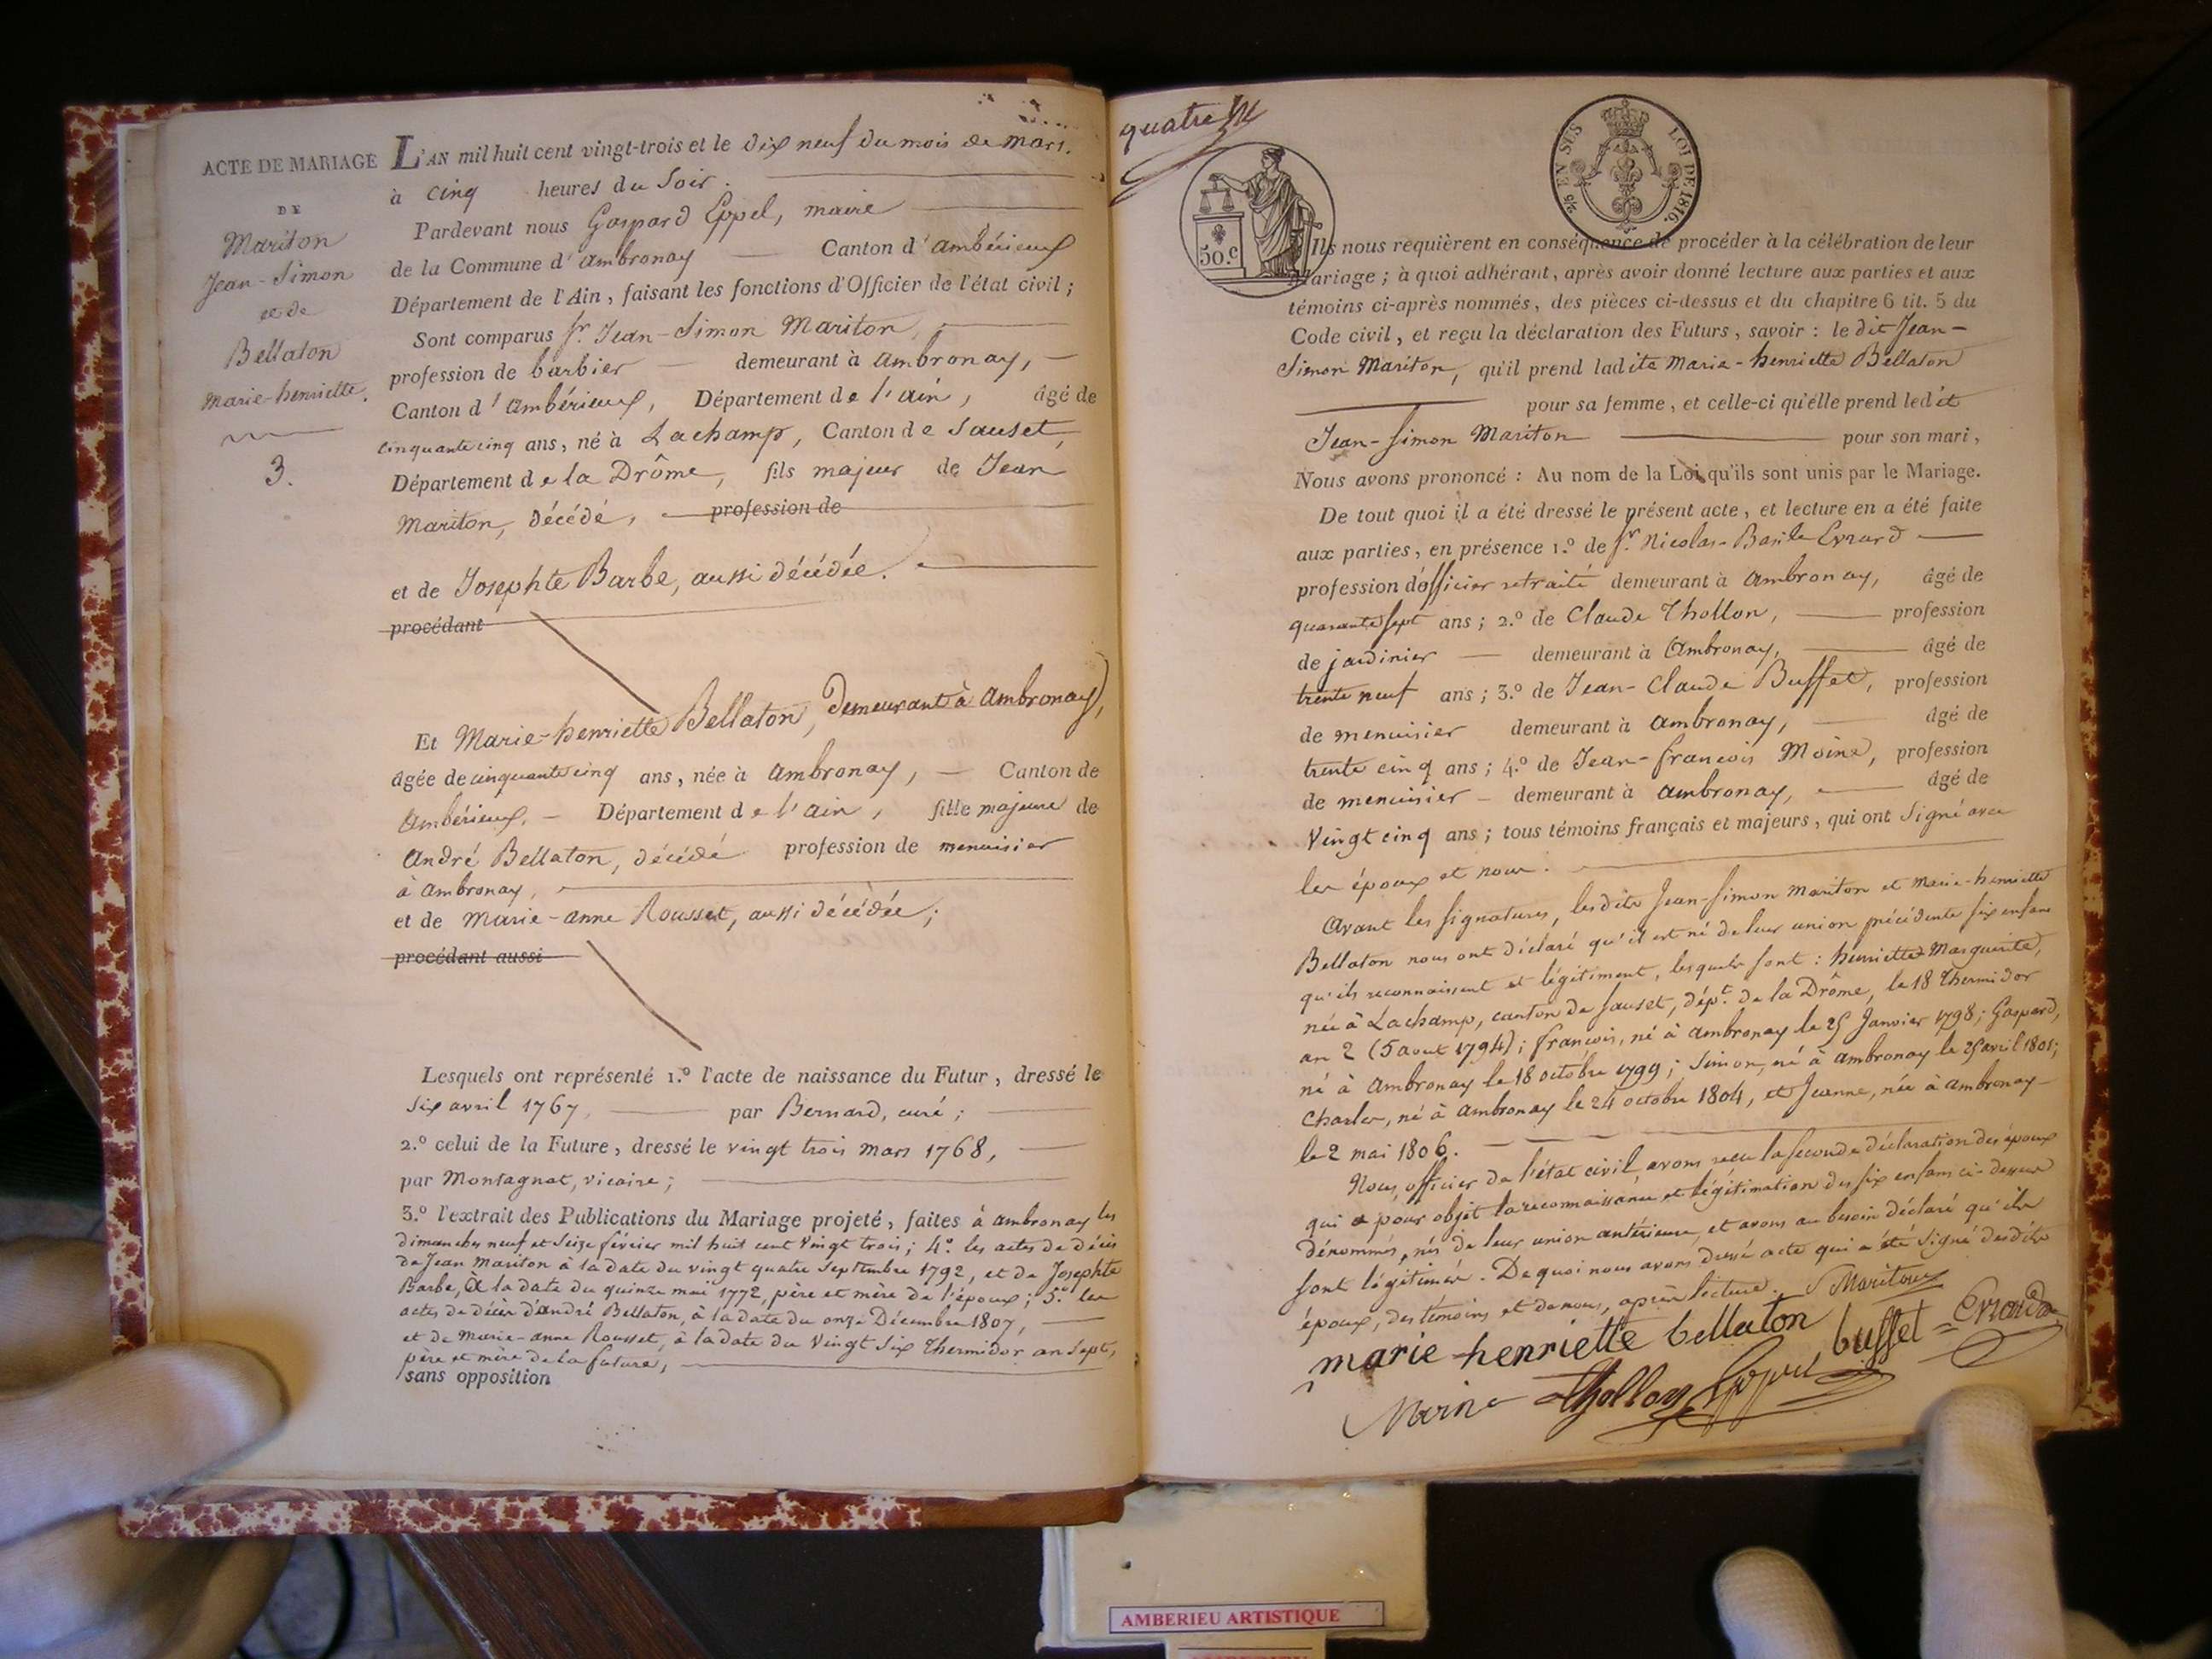 ACTE DE MARIAGE
DE
Mariton
Jean-Simon
et de
Bellaton
Marie-henriette.
3.
L'AN mil huit cent vingt-trois et le dix neuf du mois de mars.
à cinq heures du soir.
Pardevant nous Gaspard Eppel, maire
de la Commune d'ambronay Canton d'ambérieux
Département de l'Ain, faisant les fonctions d'Officier de l'état civil;
Sont comparus Sr. Jean-Simon Mariton,
profession de barbier demeurant à ambronay,
Canton d'ambérieux, Département de l'ain, âgé de
cinquante cinq ans, né à Lachamp, Canton de Sauset,
Département de la Drôme, fils majeur de Jean
Mariton, décédé, profession de
et de Josephte Barbe, aussi décédée.
procédant
Et Marie-henriette Bellaton, demeurant à ambronay,
âgée de cinquante cinq ans, née à ambronay, Canton de
ambérieux, Département de l'ain, fille majeure de
andré Bellaton, décédé profession de menuisier
à ambronay,
et de Marie-anne Rousset, aussi décédée;
procédant aussi
Lesquels ont représenté 1.º l'acte de naissance du Futur, dressé le
six avril 1767, par Bernard, curé;
2.º celui de la Future, dressé le vingt trois mars 1768,
par Montagnat, vicaire;
3.º l'extrait des Publications du Mariage projeté, faites à ambronay les
dimanches neuf et seize février mil huit cent vingt trois; 4.º les actes de décès
de Jean Mariton à la date du vingt quatre septembre 1792, et de Josephte
Barbe, à la date du quinze mai 1772, père et mère de l'époux; 5.º les
actes de décès d'andré Bellaton, à la date du onze Décembre 1807,
et de Marie-anne Rousset, à la date du vingt six thermidor an sept,
père et mère de la future,
sans opposition
quatre
50.c
25 EN SUS LOI DE 1816.
Ils nous requièrent en conséquence de procéder à la célébration de leur
Mariage; à quoi adhérant, après avoir donné lecture aux parties et aux
témoins ci-après nommés, des pièces ci-dessus et du chapitre 6 tit. 5 du
Code civil, et reçu la déclaration des Futurs, savoir: le dit Jean-
Simon Mariton, qu'il prend ladite Marie-henriette Bellaton
pour sa femme, et celle-ci qu'elle prend ledit
Jean-Simon Mariton pour son mari,
Nous avons prononcé: Au nom de la Loi, qu'ils sont unis par le Mariage.
De tout quoi il a été dressé le présent acte, et lecture en a été faite
aux parties, en présence 1.º de Sr. Nicolas-Basile Evrard
profession d'officier retraité demeurant à ambronay, âgé de
quarante sept ans; 2.º de Claude Thollon, profession
de jardinier demeurant à ambronay, âgé de
trente neuf ans; 3.º de Jean-Claude Buffet, profession
de menuisier demeurant à ambronay, âgé de
trente cinq ans; 4.º de Jean-françois Moine, profession
de menuisier demeurant à ambronay, âgé de
vingt cinq ans; tous témoins français et majeurs, qui ont signé avec
les époux et nous.
Avant les signatures, lesdits Jean-Simon Mariton et Marie-henriette
Bellaton nous ont déclaré qu'il est né de leur union précédente six enfans
qu'ils reconnaissent et légitiment, lesquels sont: henriette Marguerite,
née à Lachamp, canton de Sauset, dépt. de la Drôme, le 18 thermidor
an 2 (5 aout 1794); françois, né à ambronay le 25 Janvier 1798; Gaspard,
né à ambronay le 18 octobre 1799; Simon, né à ambronay le 25 avril 1801;
Charles, né à ambronay le 24 octobre 1804, et Jeanne, née à ambronay
le 2 mai 1806.
Nous, officier de l'état civil, avons reçu la seconde déclaration des époux
qui a pour objet la reconnaissance et légitimation des six enfans ci-dessus
dénommés, nés de leur union antérieure, et avons au besoin déclaré qu'ils
sont légitimés. De quoi nous avons dressé acte qui a été signé desdits
époux, des témoins et de nous, après lecture. S Mariton
marie henriette bellaton buffet Evrard
Moine Thollon Eppel
AMBERIEU ARTISTIQUE